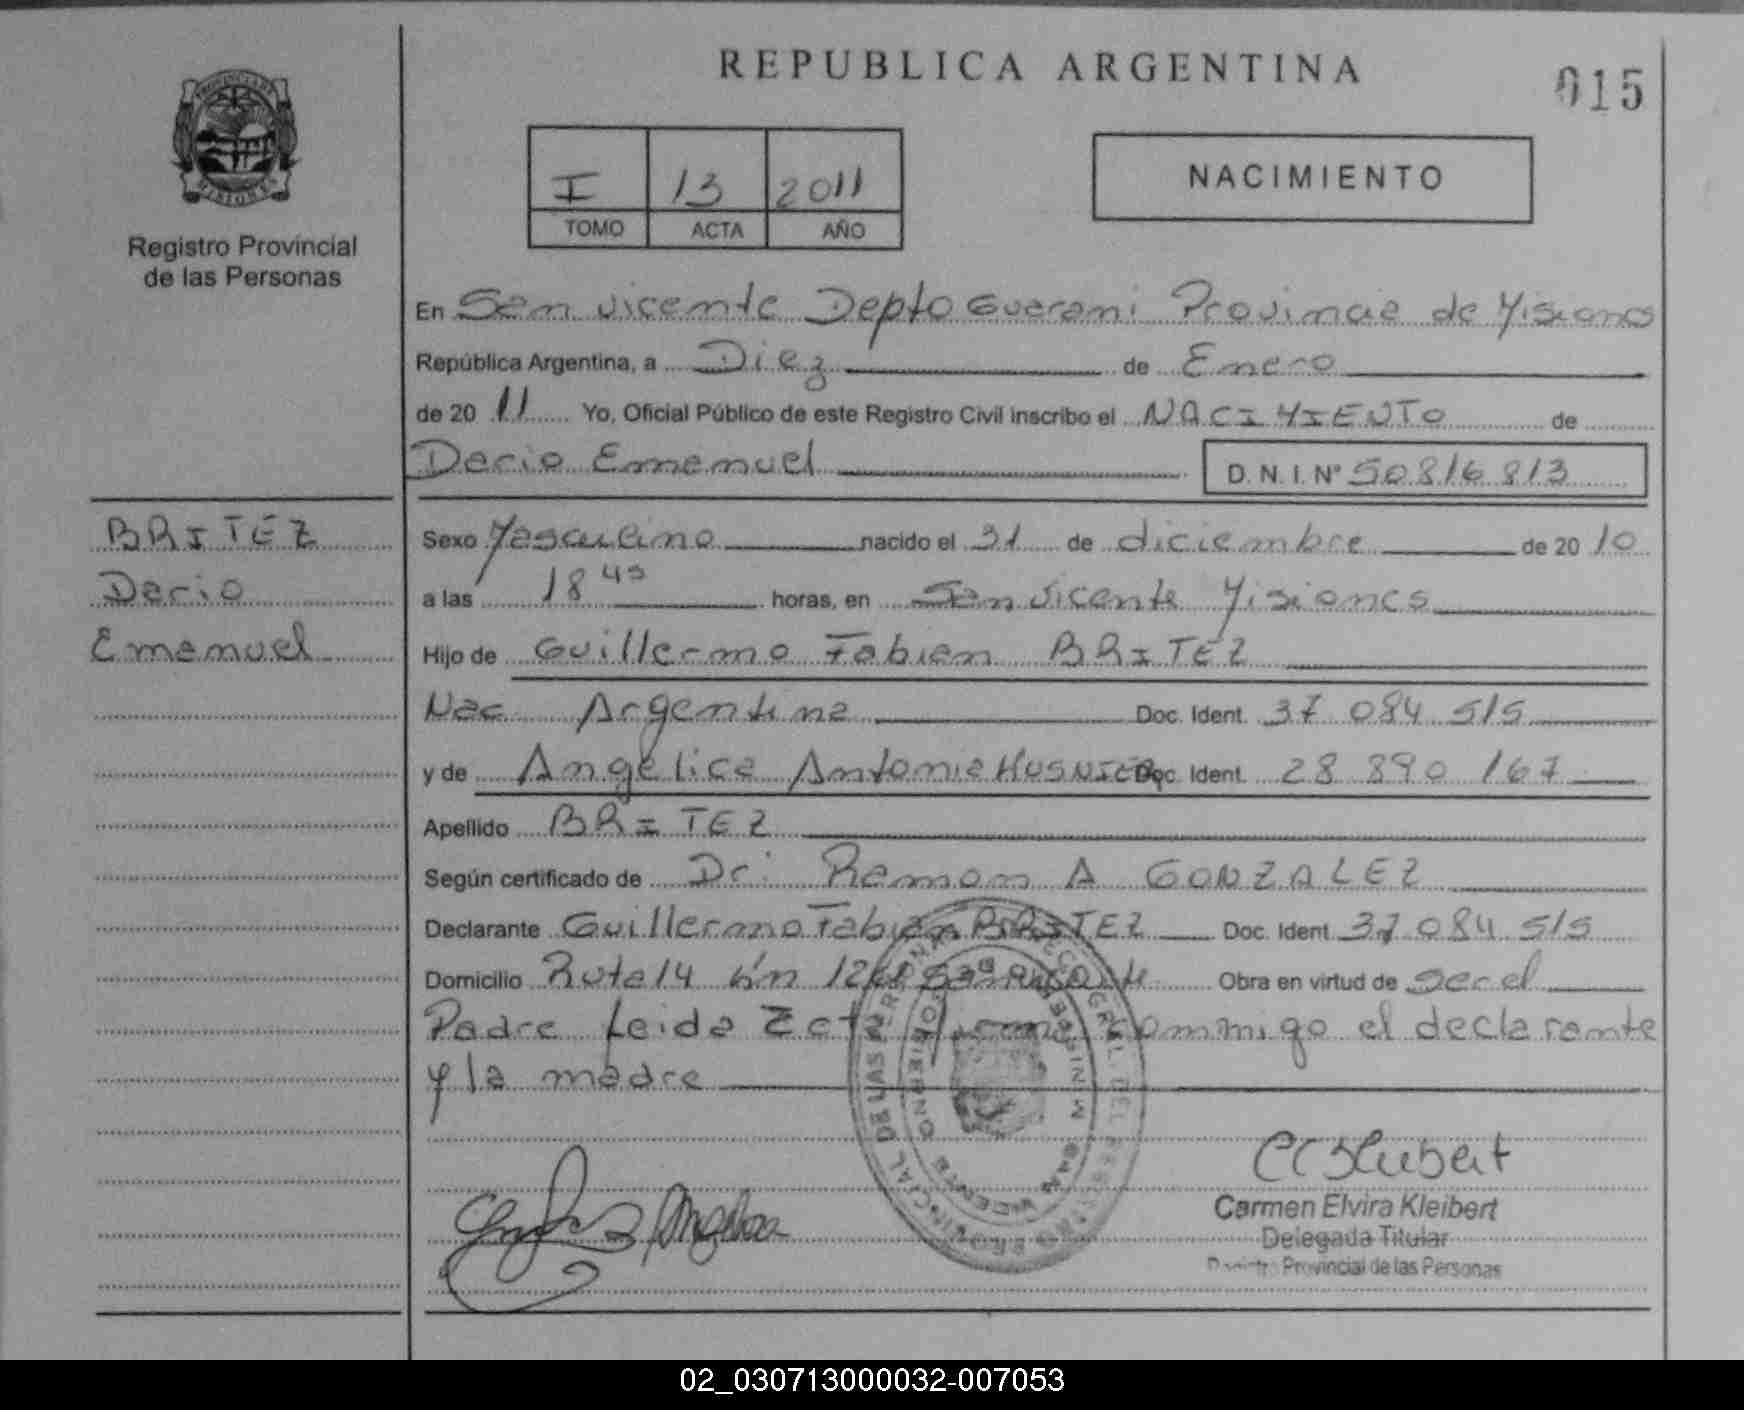 REPUBLICA ARGENTINA
015
PROVINCIA DE MISIONES
Registro Provincial
de las Personas
I 13 2011
TOMO ACTA AÑO
NACIMIENTO
En San vicente Depto Guarani Provincia de Misiones
República Argentina, a Diez de Enero
de 20 11 Yo, Oficial Público de este Registro Civil inscribo el NACIMIENTO de
Dario Emanuel D.N.I. Nº 50816813
BRITEZ
Dario
Emanuel
Sexo Masculino nacido el 31 de diciembre de 20 10
a las 18 45 horas, en San vicente Misiones
Hijo de Guillermo Fabian BRITEZ
Nac Argentina Doc. Ident. 37 084 515
y de Angélica Antonia Doc. Ident. 28 890 167
Apellido BRITEZ
Según certificado de Dr: Ramon A GONZALEZ
Declarante Guillermo Fabian BRITEZ Doc. Ident 37 084 515
Domicilio Ruta 14 Obra en virtud de ser el
Padre Leida conmigo el declarante
y la madre
Carmen Elvira Kleibert
Delegada Titular
Registro Provincial de las Personas
02_030713000032-007053